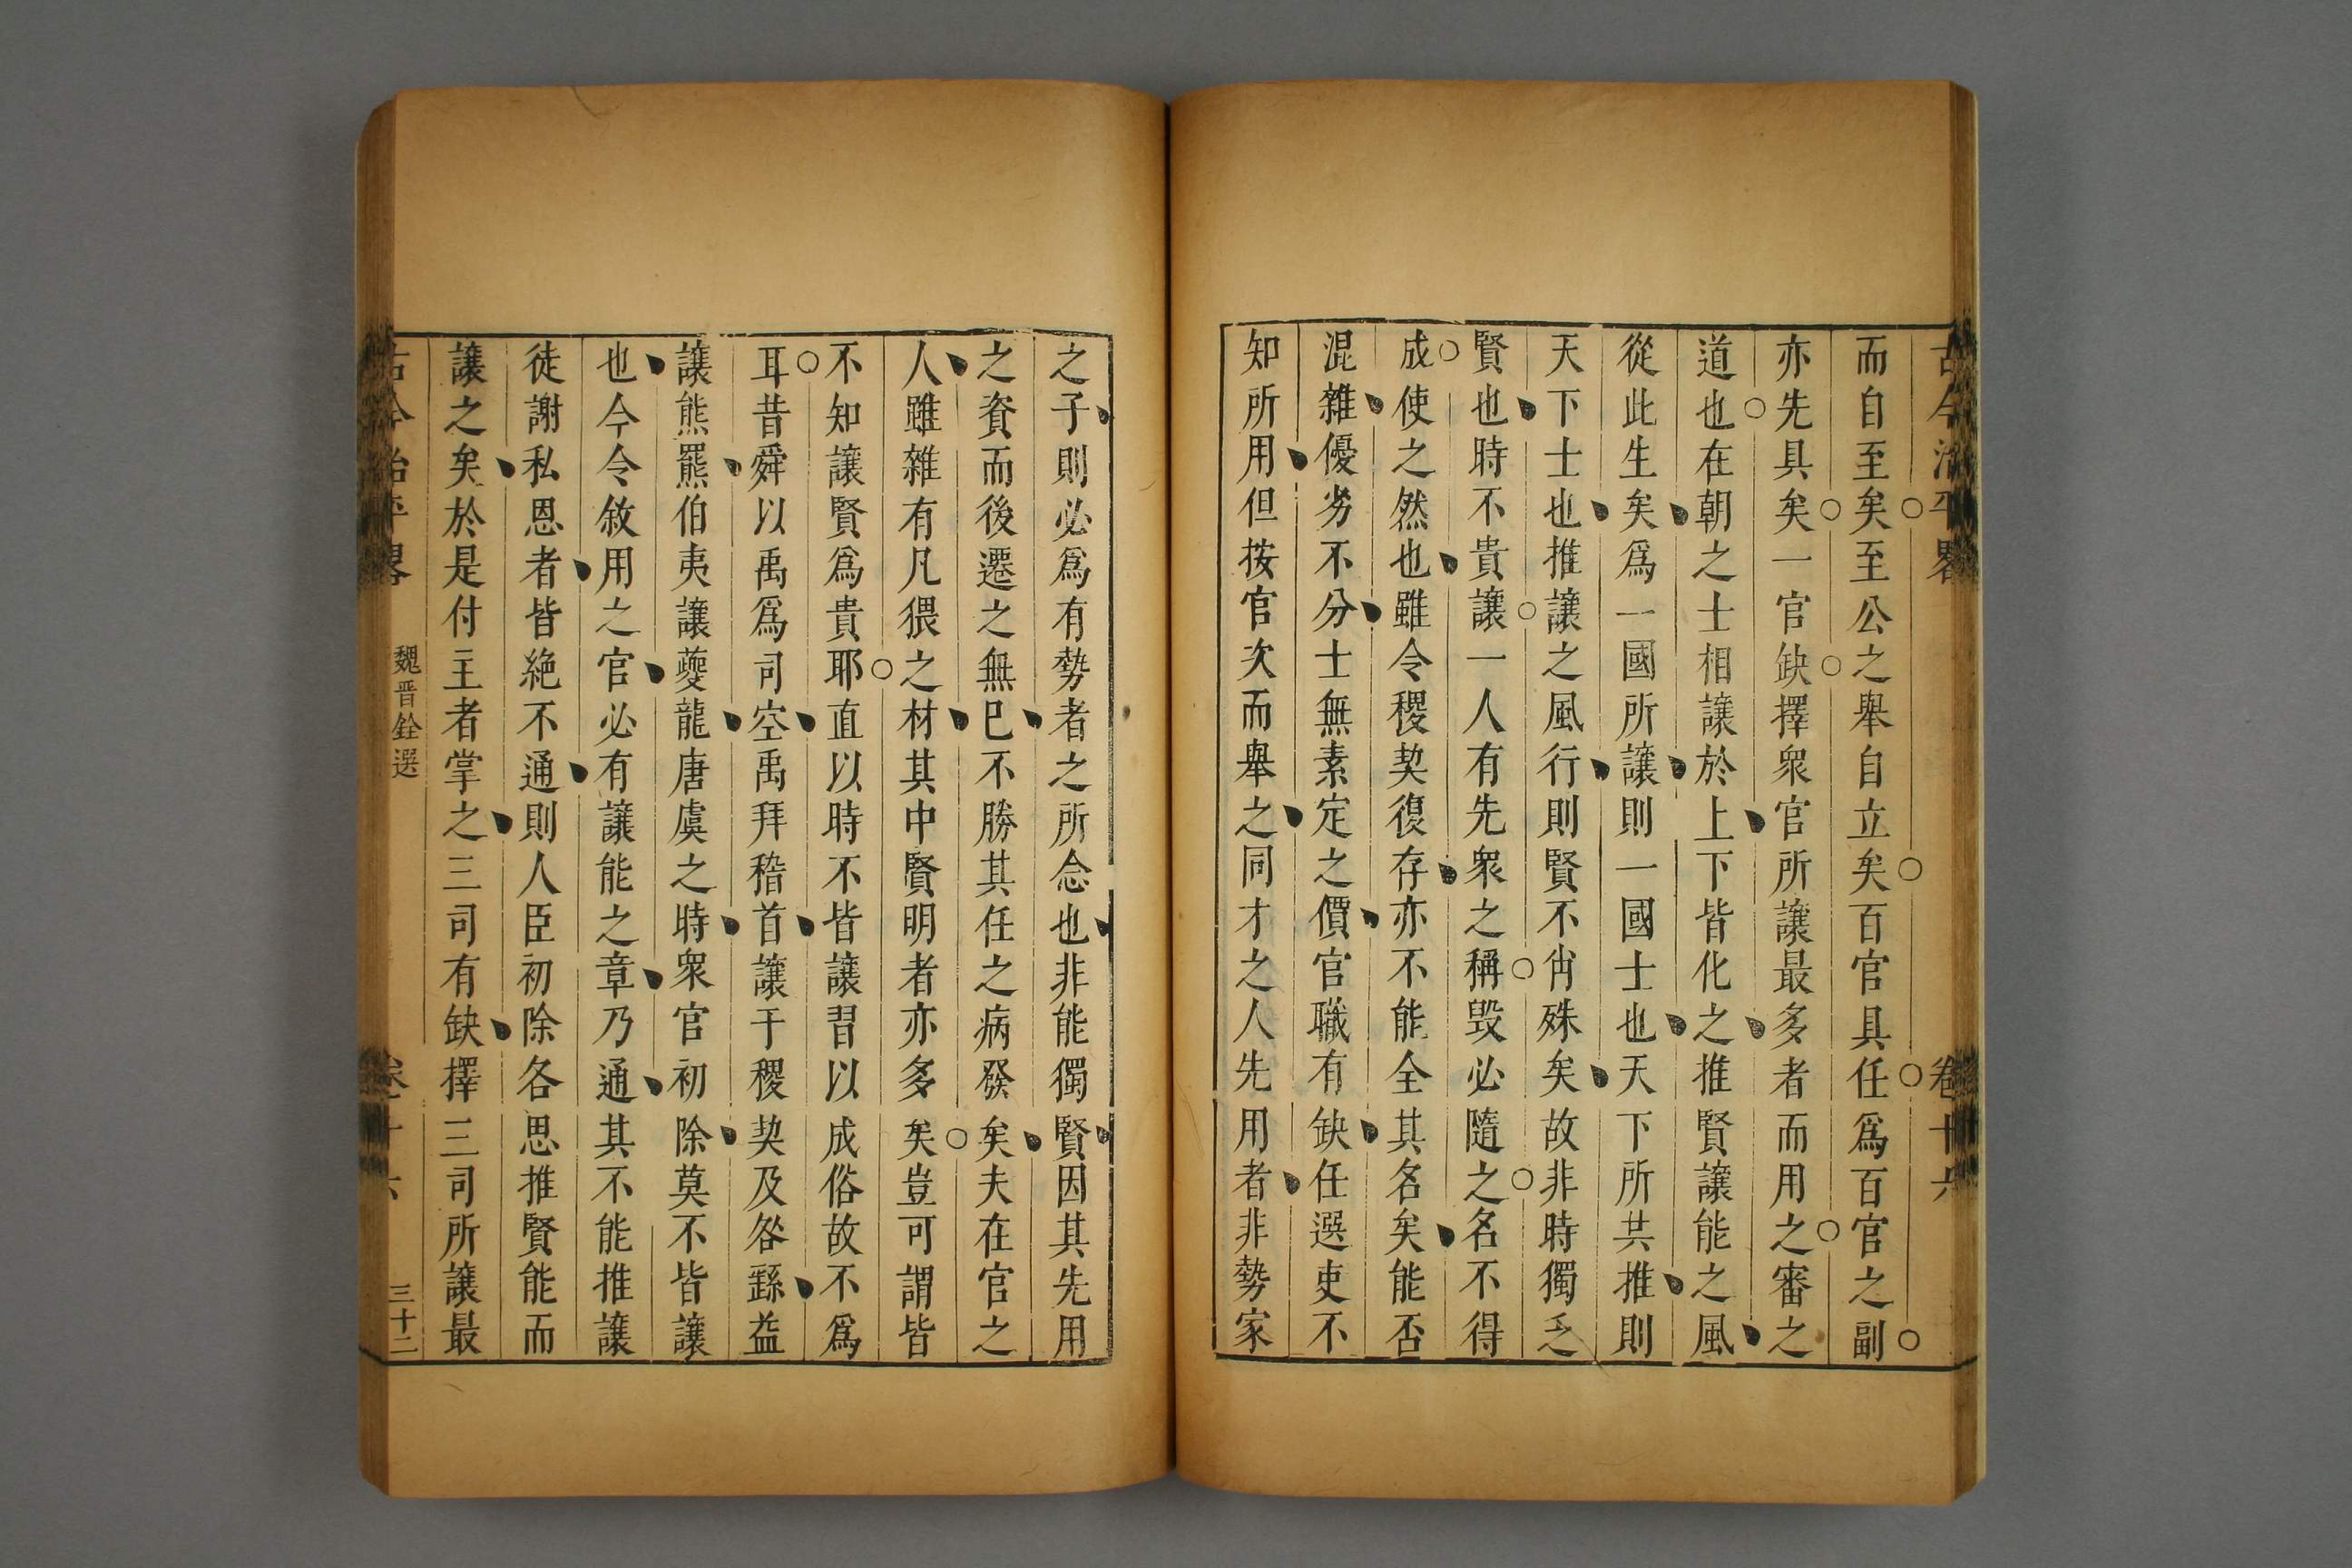 古今治平畧 卷十六
而自至矣至公之舉自立矣百官具任爲百官之副
亦先具矣一官缺擇衆官所讓最多者而用之審之
道也在朝之士相讓於上下皆化之推賢讓能之風
從此生矣爲一國所讓則一國士也天下所共推則
天下士也推讓之風行則賢不肖殊矣故非時獨乏
賢也時不貴讓一人有先衆之稱毀必隨之名不得
成使之然也雖令稷契復存亦不能全其名矣能否
混雜優劣不分士無素定之價官職有缺任選吏不
知所用但按官次而舉之同才之人先用者非勢家
之子則必爲有勢者之所念也非能獨賢因其先用
之資而後遷之無已不勝其任之病發矣夫在官之
人雖雜有凡猥之材其中賢明者亦多矣豈可謂皆
不知讓賢爲貴耶直以時不皆讓習以成俗故不爲
耳昔舜以禹爲司空禹拜稽首讓于稷契及咎繇益
讓熊羆伯夷讓夔龍唐虞之時衆官初除莫不皆讓
也今令敘用之官必有讓能之章乃通其不能推讓
徒謝私恩者皆絶不通則人臣初除各思推賢能而
讓之矣於是付主者掌之三司有缺擇三司所讓最
古今治平畧 魏晉銓選 卷十六 三十二